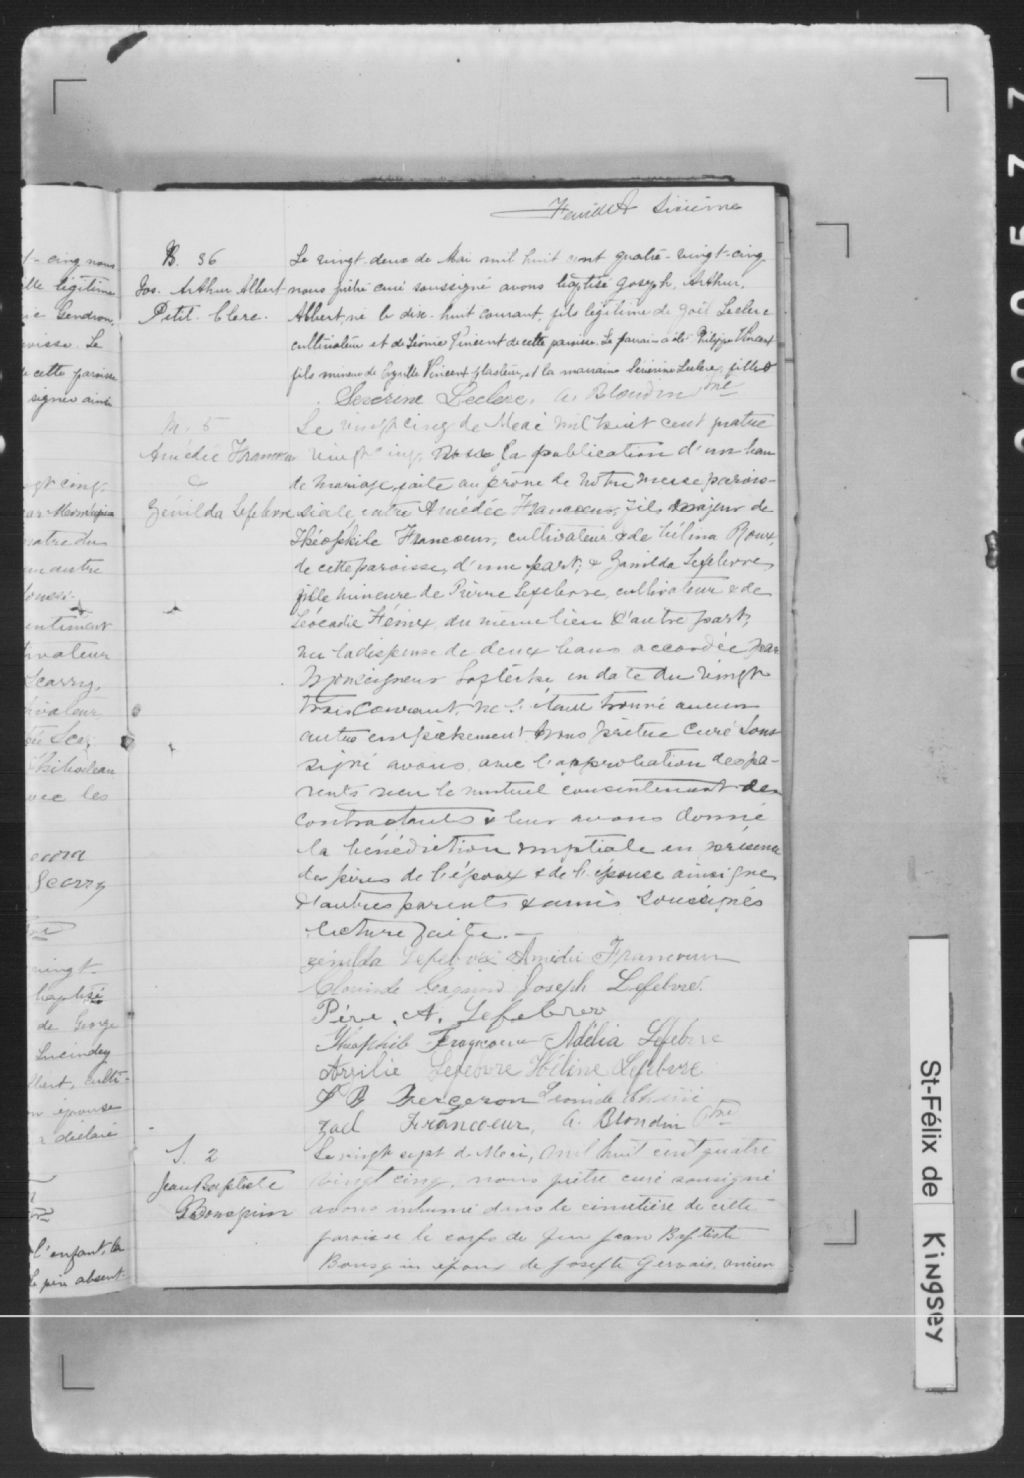 Feuillet Sixième
B. 36
Jos. Arthur Albert
Petit-Clerc.
Le vingt-deux de Mai mil huit cent quatre-vingt-cinq
nous prêtre curé soussigné avons baptisé Joseph, Arthur,
Albert, né le dix-huit courant, fils légitime de Joël Leclerc
cultivateur et de Léonie Vincent de cette paroisse. Le parrain a été Philippe Vincent
fils mineur de Cyrille Vincent, et la marraine Séverine Leclerc, fille
Severine Leclerc. A. Blondin Ptre
M. 5
Amédée Francœur
&
Zénilda Lefebvre
Le vingt cinq de Mai mil huit cent quatre
vingt cinq, la publication d'un ban
de mariage faite au prône de notre messe parois-
siale, entre Amédée Francœur, fils majeur de
Théophile Francœur, cultivateur & de Hélina Roux,
de cette paroisse, d'une part; & Zénilda Lefebvre
fille mineure de Pierre Lefebvre, cultivateur & de
Léocadie Hémex, du même lieu d'autre part;
vu la dispense de deux bans accordée par
Monseigneur Laflèche en date du vingt
trois courant, ne s'étant trouvé aucun
autre empêchement nous prêtre curé sous
signé avons, avec l'approbation des pa-
rents reçu le mutuel consentement des
contractants & leur avons donné
la bénédiction nuptiale en présence
des pères de l'époux & de l'épouse ainsi que
d'autres parents & amis soussignés
lecture faite.—
Zénilda Lefebvre Amédée Francœur
Clorinde Gagnon Joseph Lefebvre.
Pére. A. Lefebvre
Théophile Francoeur Adélia Lefebvre
Arzilie Lefebvre Héline Lefebvre
J B Bergeron Léonide
Zoel Francœur, A. Blondin Ptre
S. 2
Jean Baptiste
Bourgoin
Le vingt sept de Mai, mil huit cent quatre
vingt cinq, nous prêtre curé soussigné
avons inhumé dans le cimetière de cette
paroisse le corps de feu Jean Baptiste
Bourgoin époux de Josefte Gervais, ancien
t-cinq nous
lle légitime
Gendron,
roisse. Le
cette paroisse
signer ainsi
gt cinq.
notre du
une autre
entiment
tivateur
Scarry,
tivateur,
avec les
Scarry
vingt-
baptisé
de George
Lucinday
lbert, culti-
n épouse
a déclaré
l'enfant, la
le père absent
St-Félix de Kingsey